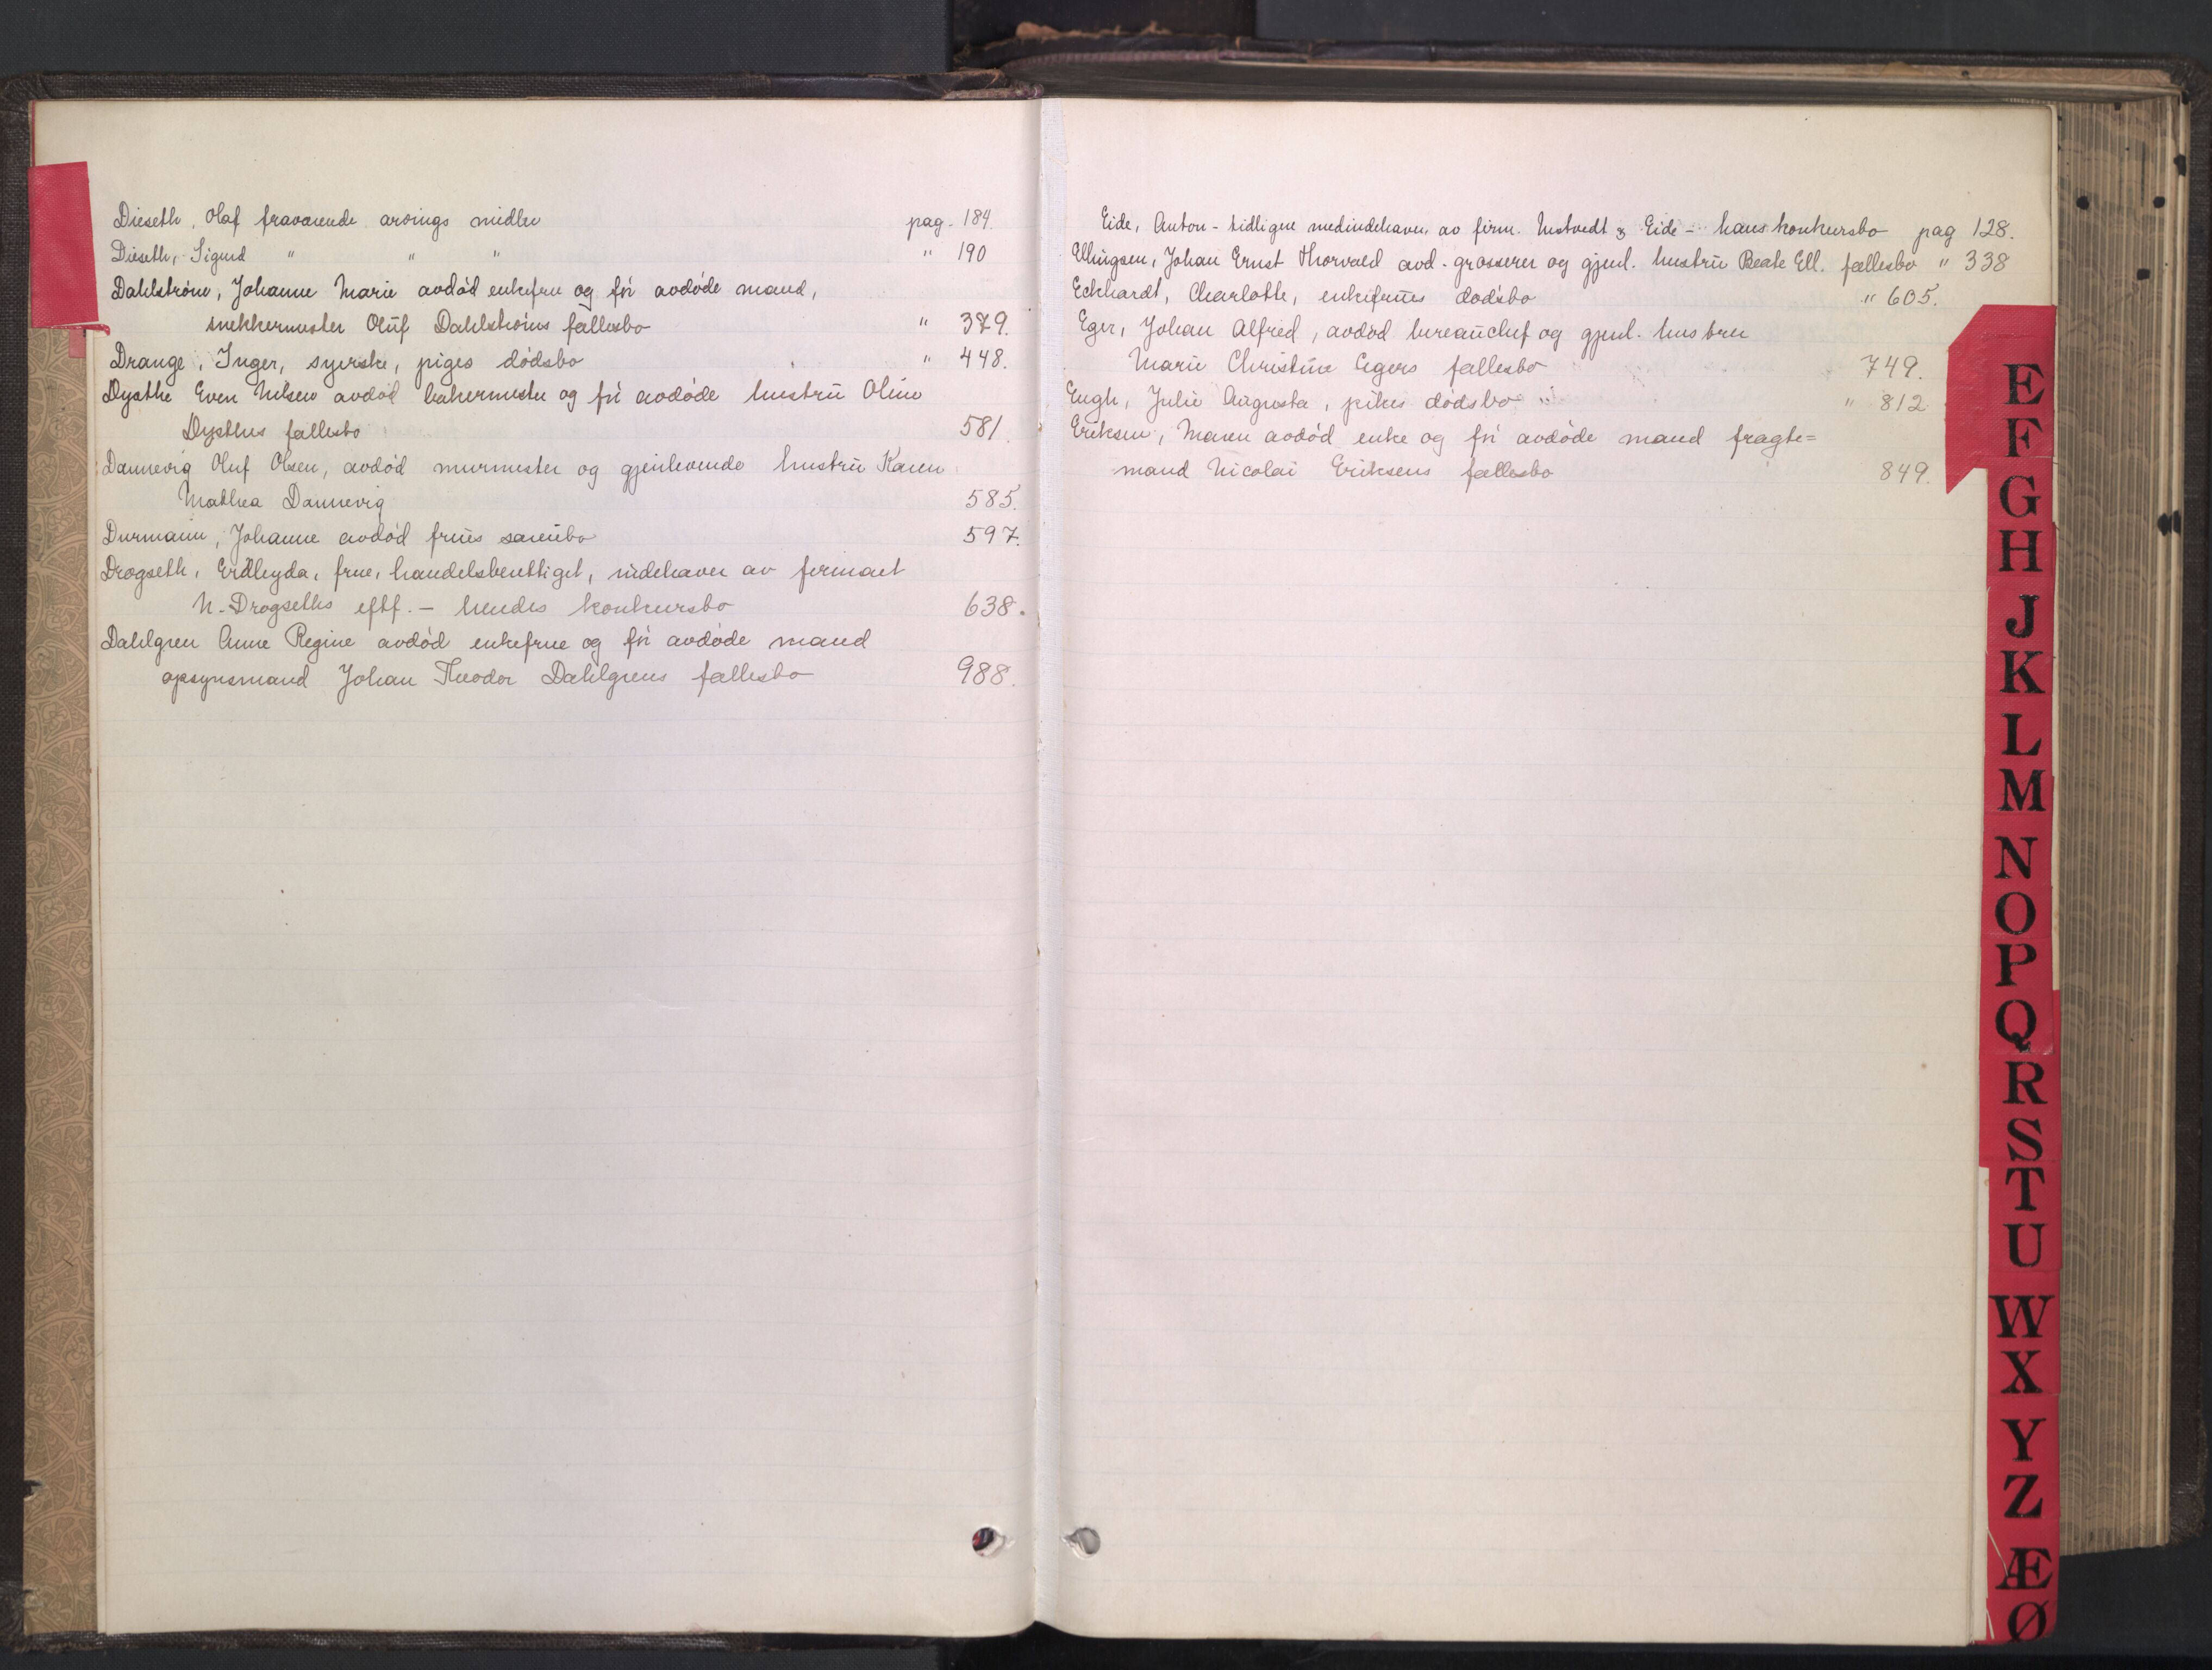 Dieseth, Olaf fraværende arvings midler pag. 184.
Dieseth, Sigurd " " " " 190
Dahlstrøm, Johanne Marie avdød enkefrue og før avdøde mand,
snekkermester Oluf Dahlstrøms fællesbo " 379.
Drange, Inger, syerske, piges dødsbo " 448.
Dysthe Even Nilsen avdød bakermester og før avdøde hustru Oline
Dysthes fællesbo 581.
Dannevig Oluf Olsen, avdød murmester og gjenlevende hustru Karen
Mathea Dannevig 585.
Durmann, Johanne avdød frues særbo 597.
Drogseth, frue, handelsberettiget, indehaver av firmaet
N. Drogseths eftf. - hendes konkursbo 638.
Dahlgren Anne Regine avdød enkefrue og før avdøde mand
opsynsmand Johan Theodor Dahlgrens fællesbo 988.
Eide, Anton - tidligere medindehaver av firm. & Eide - hans konkursbo pag 128.
Ellingsen, Johan Ernst Thorvald avd. grosserer og gjenl. hustru Beate Ell. fællesbo " 338
Eckhardt, Charlotte, enkefrues dødsbo " 605.
Eger, Johan Alfred, avdød bureauchef og gjenl. hustru
Marie Christine Egers fællesbo 749.
Engh, Julie Augusta, pikes dødsbo " 812
Eriksen, Maren avdød enke og før avdøde mand fragte=
mand Nicolai Eriksens fællesbo 849.
E
F
G
H
J
K
L
M
N
O
P
Q
R
S
T
U
W
X
Y
Z
Æ
Ø